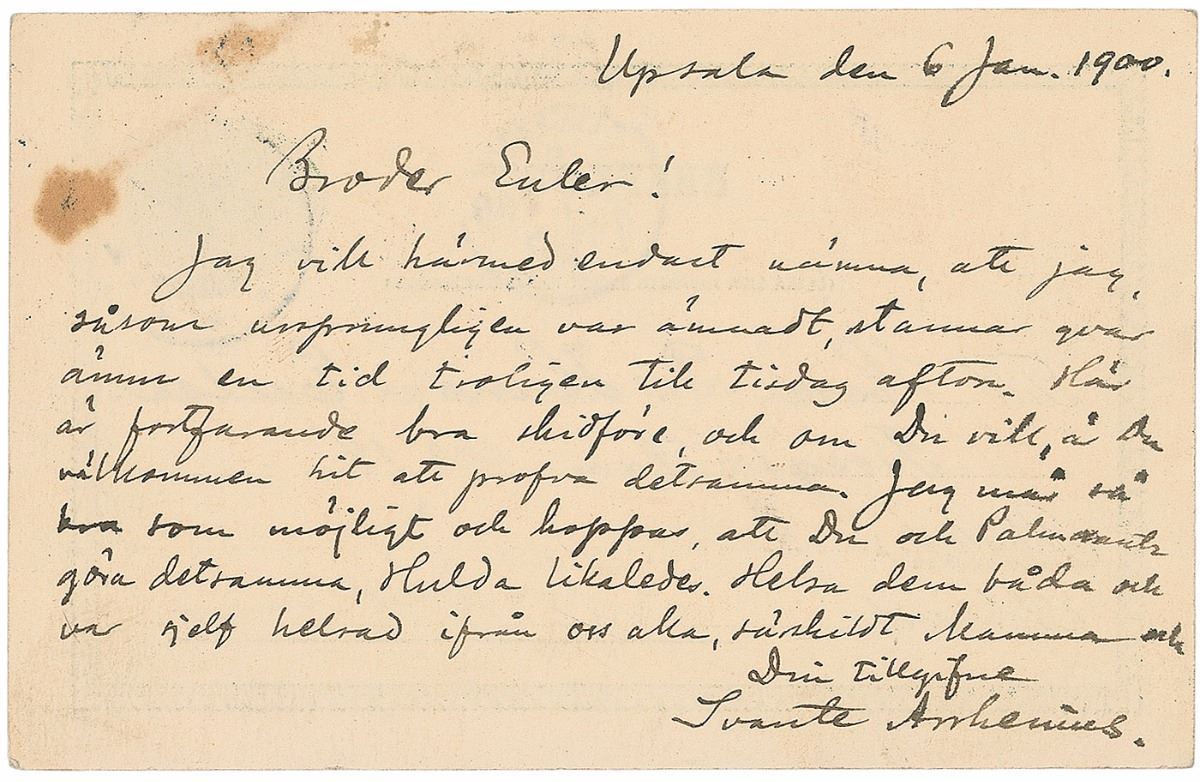 Upsala den 6 Jan. 1900.
Broder Euler!
Jag vill härmed endast nämna, att jag,
såsom ursprungligen var ämnadt, stannar qvar
ännu en tid troligen till tisdag afton. Här
är fortfarande bra skidföre, och om Du vill, ä Du
välkommen hit att profva detsamma. Jag mår så
bra som möjligt och hoppas, att Du och
göra detsamma, Hulda likaledes. Helsa dem båda och
var sjelf helsad ifrån oss alla, särskildt Mamma och
Din tillgifne
Svante Arrhenius.